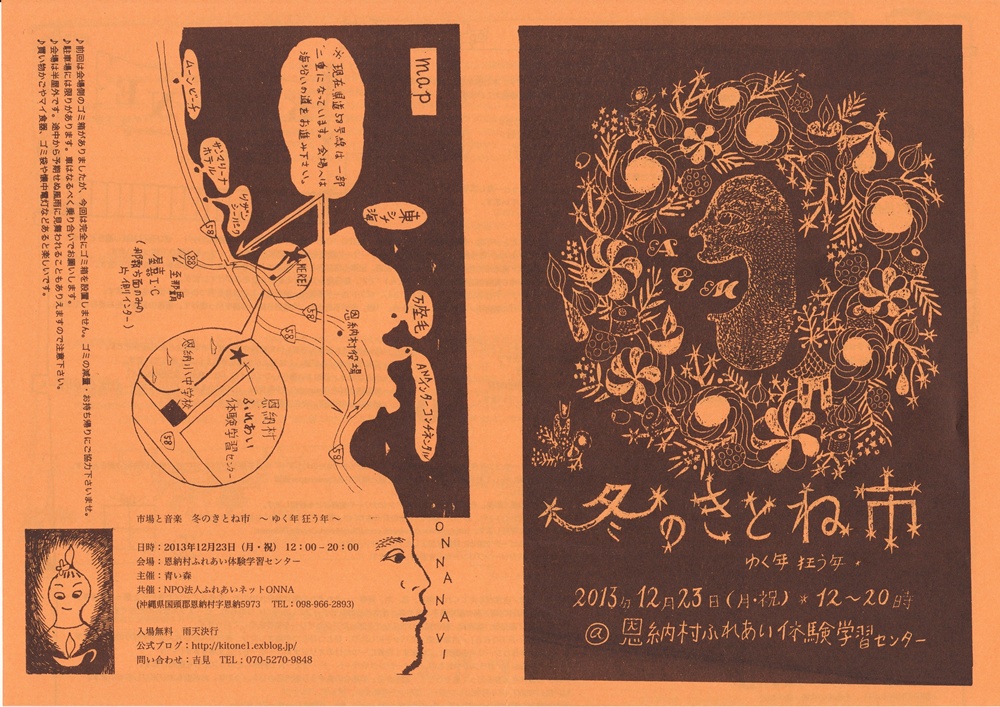 A
G
M
冬のきとね市
ゆく年 狂う年
2013年12月23日(月・祝)*12〜20時
@恩納村ふれあい体験学習センター
map
※現在県道58号線は一部
二重になっています。会場へは
海沿いの道をお進み下さい。
東シナ海
ムーンビーチ
サンマリーナ
ホテル
リザンシーパーク
58
88
至那覇
屋嘉I.C
(那覇方面のみの
片側インター)
HERE!
58
58
恩納村役場
万座毛
ANAインターコンチネンタル
58
恩納小中学校
恩納村
ふれあい
体験学習センター
58
ONNA NAVI
♪前回は会場側のゴミ箱がありましたが、今回は完全にゴミ箱を設置しません。ゴミの減量・お持ち帰りにご協力下さいませ。
♪駐車場には限りがあります。車はなるべく乗り合いでお願いします。
♪会場は半屋外です。途中から予期せぬ風雨に見舞われることもありえますので注意下さい。
♪買い物かごやマイ食器、ゴミ袋や懐中電灯などあると楽しいです。
市場と音楽 冬のきとね市 〜ゆく年 狂う年〜
日時：2013年12月23日（月・祝） 12：00－20：00
会場：恩納村ふれあい体験学習センター
主催：青い森
共催：NPO法人ふれあいネットONNA
(沖縄県国頭郡恩納村字恩納5973 TEL：098-966-2893)
入場無料 雨天決行
公式ブログ：http://kitone1.exblog.jp/
問い合わせ：吉見 TEL：070-5270-9848